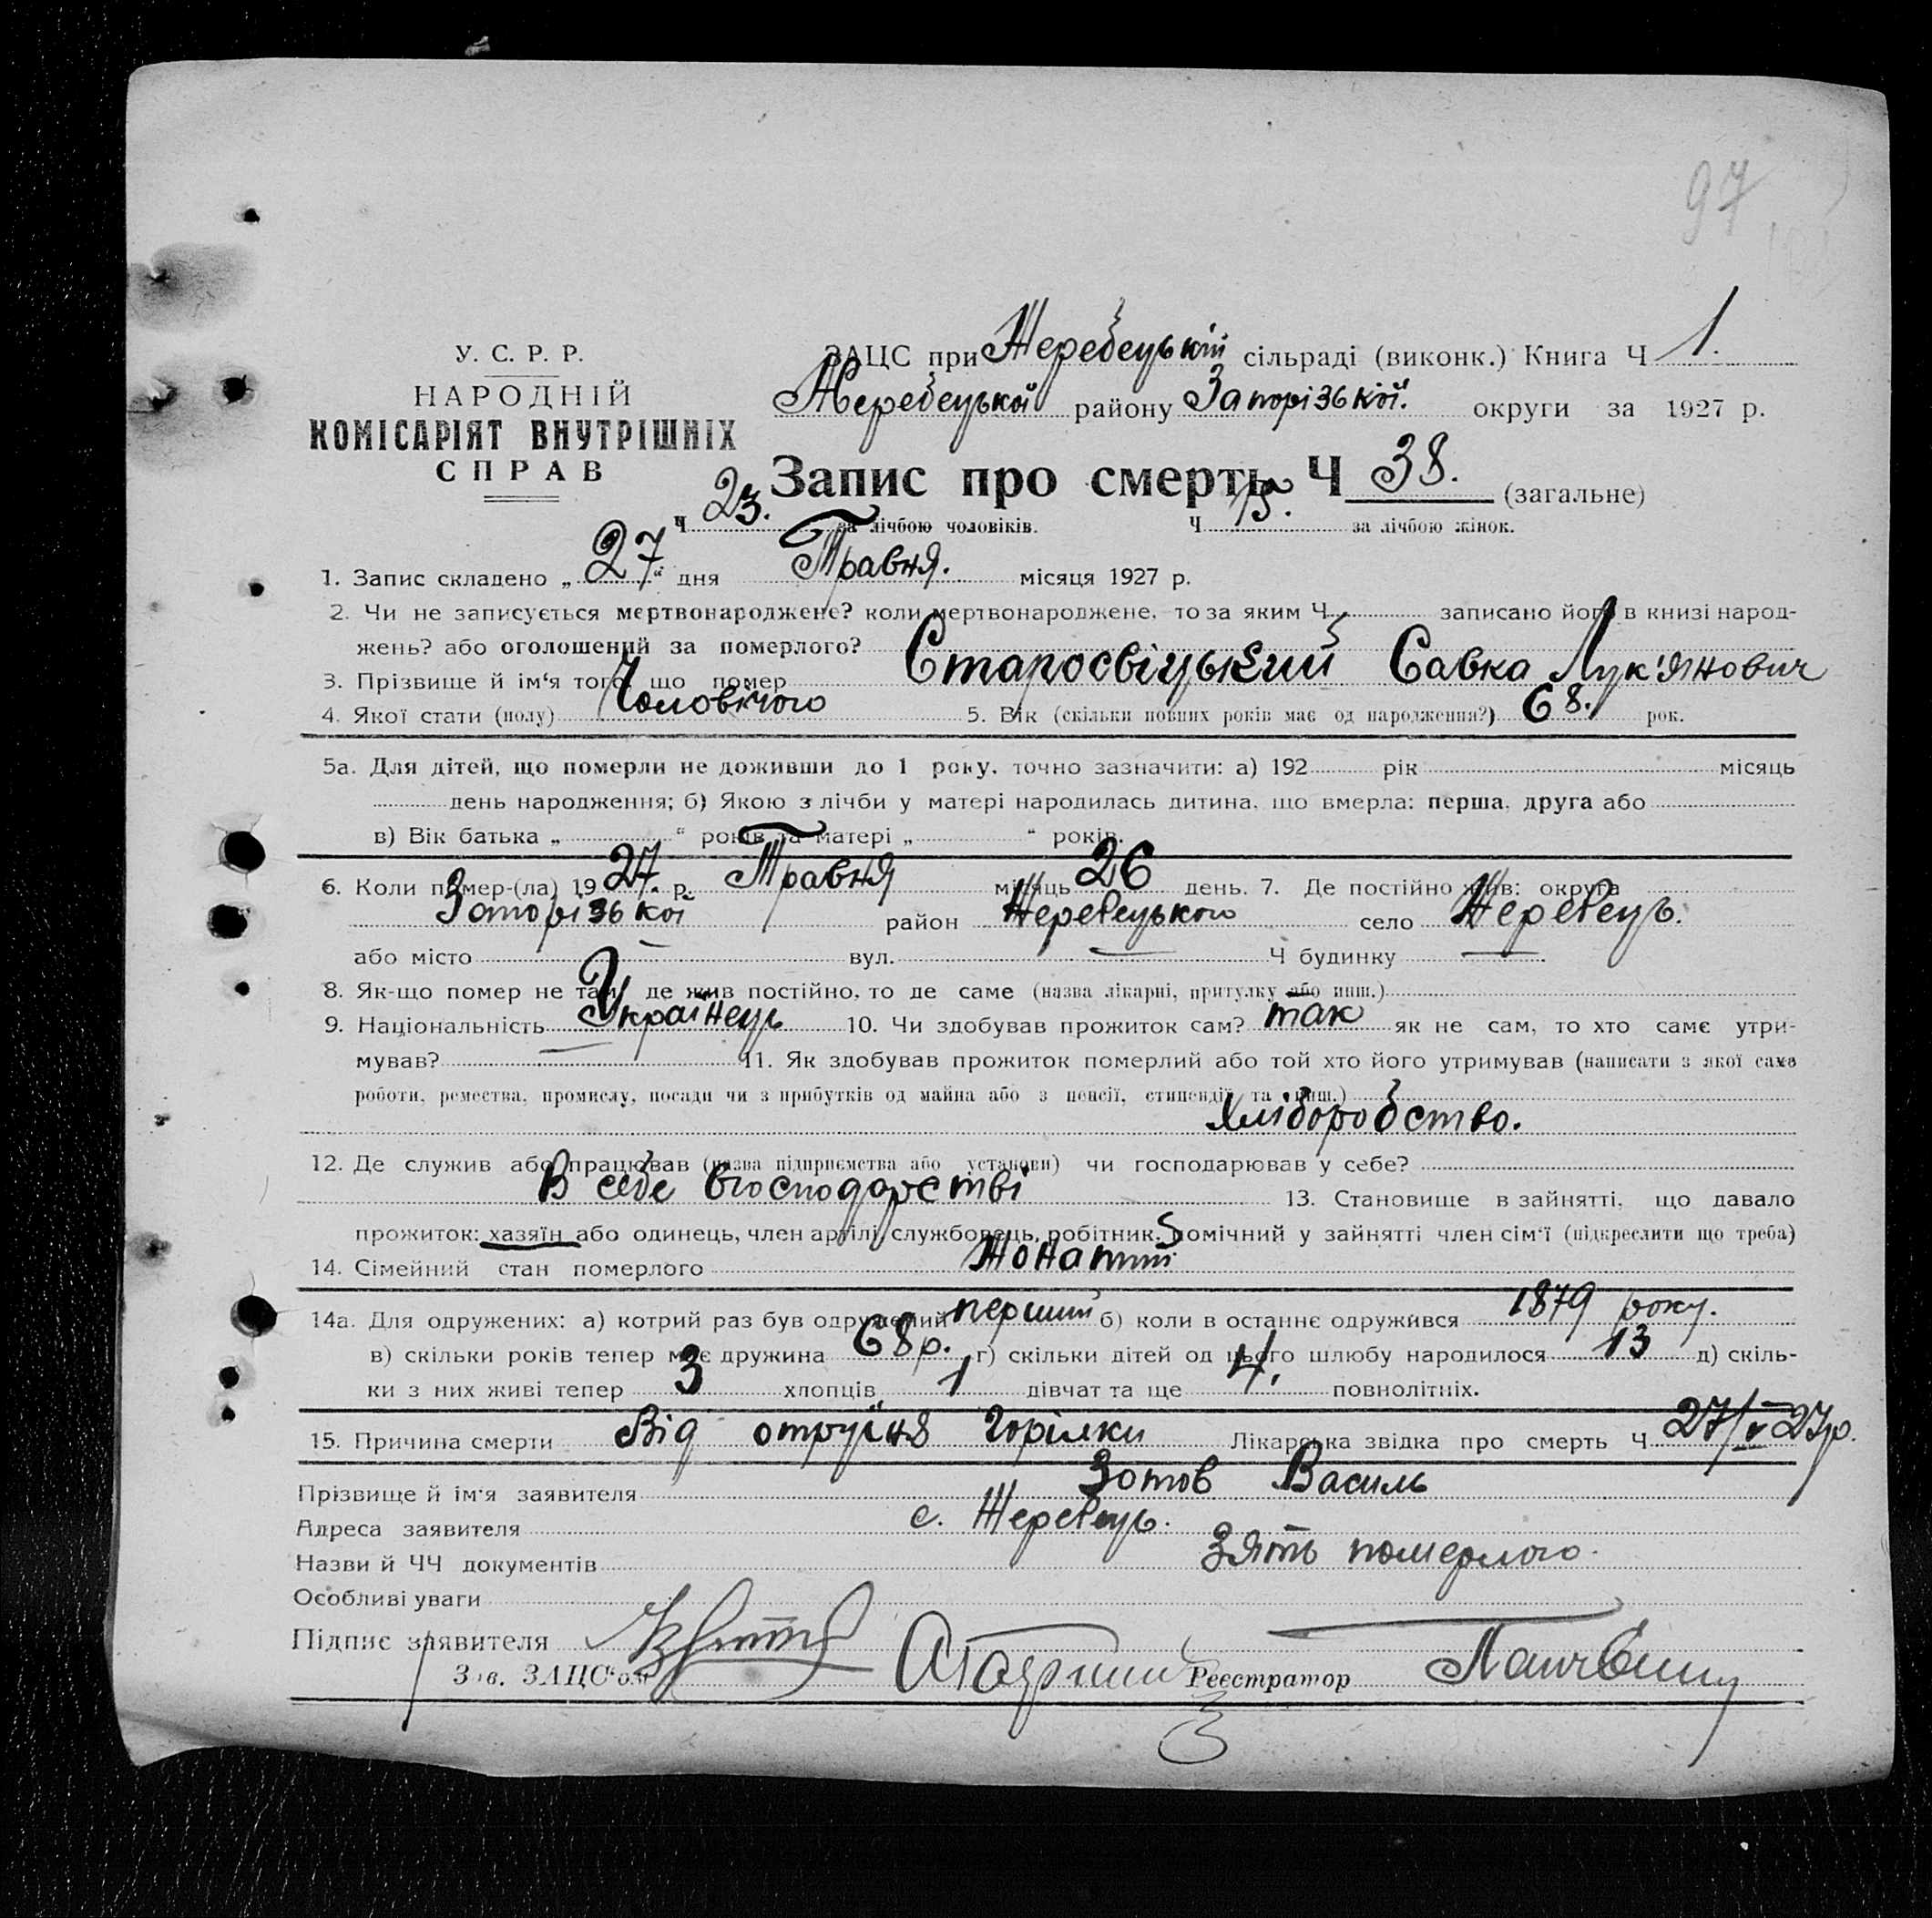 97
У. С. Р. Р.
НАРОДНІЙ
КОМІСАРІЯТ ВНУТРІШНІХ
СПРАВ
ЗАЦС при Жеребецькій сільраді (виконк.) Книга Ч 1.
Жеребецької району Запорізької округи за 1927 р.
Запис про смерть Ч 38. (загальне)
Ч 23. за лічбою чоловіків. Ч 15. за лічбою жінок.
1. Запис складено „ 27 “ дня Травня. місяця 1927 р.
2. Чи не записується мертвонароджене? коли мертвонароджене, то за яким Ч записано його в книзі народ-
жень? або оголошений за померлого?
3. Прізвище й ім‘я того, що помер Старосвіцький Савка Лук'янович
4. Якої стати (полу) Чоловічого 5. Вік (скільки повних років має од народження?) 68. рок.
5а. Для дітей, що померли не доживши до 1 року, точно зазначити: а) 192 рік місяць
день народження; б) Якою з лічби у матері народилась дитина, що вмерла: перша, друга або
в) Вік батька „ “ років та матері „ “ років.
6. Коли помер-(ла) 1927. р. Травня місяць 26 день. 7. Де постійно жив: округа
Запорізької район Жеребецького село Жеребець.
або місто — вул. — Ч будинку —
8. Як-що помер не там, де жив постійно, то де саме (назва лікарні, притулку або инш.) —
9. Національність Українець 10. Чи здобував прожиток сам? так як не сам, то хто саме утри-
мував? — 11. Як здобував прожиток померлий або той хто його утримував (написати з якої саме
роботи, ремества, промислу, посади чи з прибутків од майна або з пенсії, стипендії та инш.)
Хліборобство.
12. Де служив або працював (назва підприємства або установи) чи господарював у себе?
В себе вгосподарстві 13. Становище в зайнятті, що давало
прожиток: хазяїн або одинець, член артілі, службовець, робітник, помічний у зайнятті член сім‘ї (підкреслити що треба)
14. Сімейний стан померлого Жонатий
14а. Для одружених: а) котрий раз був одружений перший б) коли в останнє одружився 1879 року.
в) скільки років тепер має дружина 68 р. г) скільки дітей од цього шлюбу народилося 13 д) скіль-
ки з них живі тепер 3 хлопців 1 дівчат та ще 4. повнолітніх.
15. Причина смерти Від отруїня горілки Лікарська звідка про смерть Ч 27/V 27р.
Прізвище й ім‘я заявителя Зотов Василь
Адреса заявителя с. Жеребець.
Назви й ЧЧ документів Зять померлого.
Особливі уваги
Підпис заявителя
Зав. ЗАЦС‘ом Реєстратор